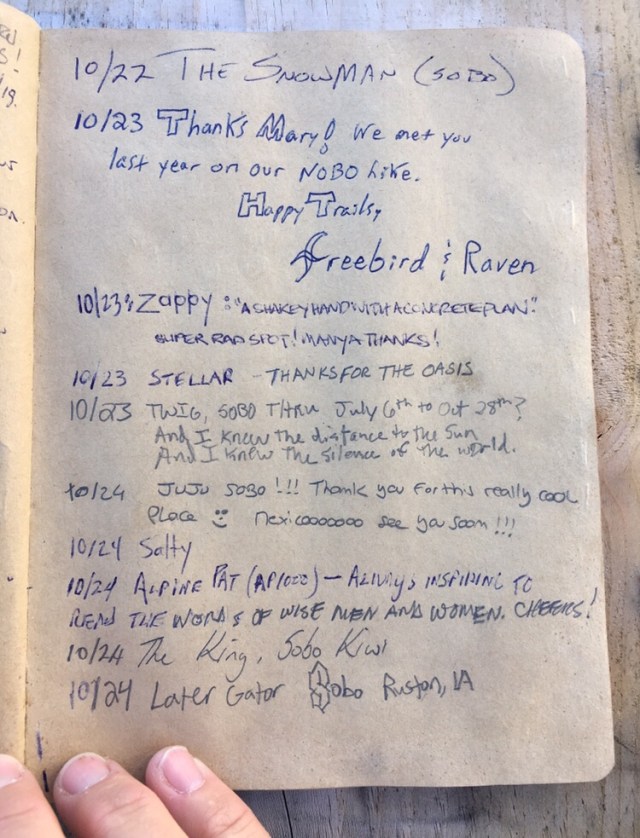 10/22 THE SNOWMAN (SOBO)
10/23 Thanks Mary! We met you
last year on our NOBO hike.
Happy Trails,
Freebird & Raven
10/23: Zappy: "A SHAKEY HAND WITH A CONCRETE PLAN."
SUPER RAD SPOT! MANY A THANKS!
10/23 STELLAR - THANKS FOR THE OASIS
10/23 TWIG, SOBO THRU July 6th to Oct 28th?
And I knew the distance to the Sun
And I knew the silence of the world.
10/24 JUJU SOBO!!! Thank you for this really cool
PLace :) Mexicooooooo see you soon!!!
10/24 Salty
10/24 ALPINE PAT - ALWAYS INSPIRING TO
READ THE WORDS OF WISE MEN AND WOMEN. CHEERS!
10/24 The King, Sobo Kiwi
10/24 Later Gator Sobo Ruston, LA